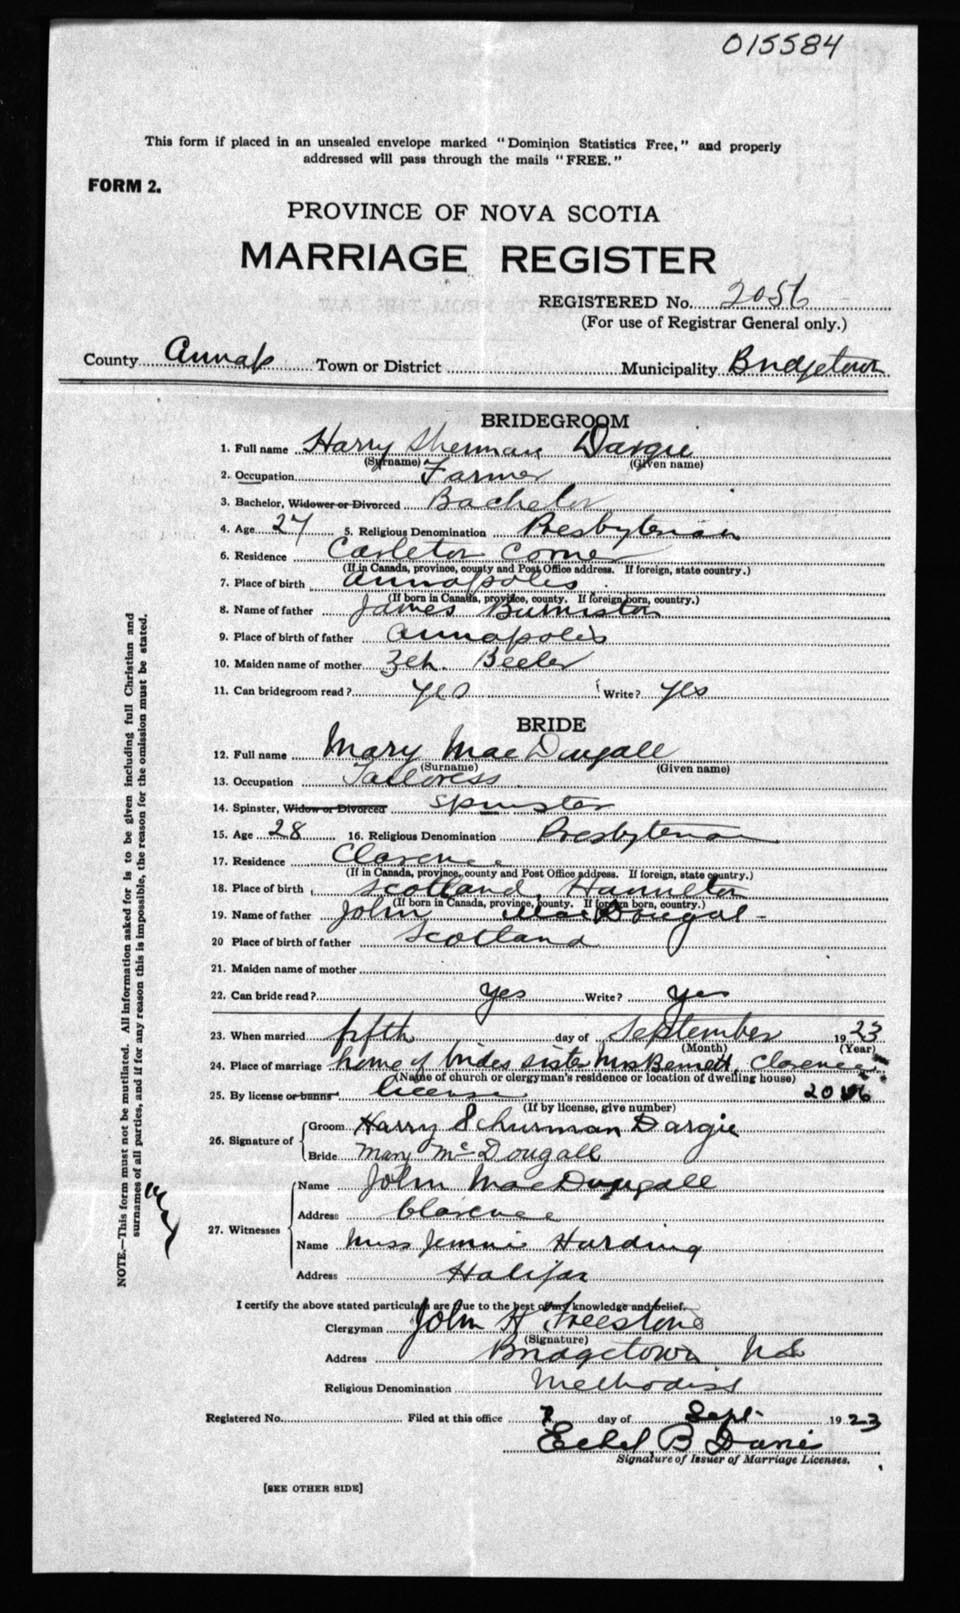 015584
This form if placed in an unsealed envelope marked "Dominion Statistics Free," and properly
addressed will pass through the mails "FREE."
FORM 2.
PROVINCE OF NOVA SCOTIA
MARRIAGE REGISTER
REGISTERED No. 2056
(For use of Registrar General only.)
County Annap Town or District Municipality Bridgetown
BRIDEGROOM
1. Full name Harry Sherman Dargie
(Surname) (Given name)
2. Occupation Farmer
3. Bachelor, Widower or Divorced Bachelor
4. Age 27 5. Religious Denomination Presbyterian
6. Residence Carleton Corner
(If in Canada, province, county and Post Office address. If foreign, state country.)
7. Place of birth Annapolis
(If born in Canada, province, county. If foreign born, country.)
8. Name of father James
9. Place of birth of father Annapolis
10. Maiden name of mother Beeler
11. Can bridegroom read? yes Write? yes
BRIDE
12. Full name Mary MacDougall
(Surname) (Given name)
13. Occupation Tailoress
14. Spinster, Widow or Divorced Spinster
15. Age 28 16. Religious Denomination Presbyterian
17. Residence Clarence
(If in Canada, province, county and Post Office address. If foreign, state country.)
18. Place of birth Scotland, Hamilton
(If born in Canada, province, county. If foreign born, country.)
19. Name of father John MacDougal
20 Place of birth of father Scotland
21. Maiden name of mother
22. Can bride read? yes Write? yes
23. When married fifth day of September 1923
(Month) (Year)
24. Place of marriage home of brides sister Mrs Bennett, Clarence
(Name of church or clergyman's residence or location of dwelling house)
25. By license or banns license
(If by license, give number)
26. Signature of Groom Harry Schurman Dargie
Bride Mary McDougall
27. Witnesses Name John MacDougall
Address Clarence
Name Miss Jennie Harding
Address Halifax
I certify the above stated particulars are true to the best of my knowledge and belief.
Clergyman John H Freestone
(Signature)
Address Bridgetown N.S.
Religious Denomination Methodist
Registered No. Filed at this office 7 day of Sept. 1923
Ethel B Davis
Signature of Issuer of Marriage Licenses.
[SEE OTHER SIDE]
NOTE.—This form must not be mutilated. All information asked for is to be given including full Christian and
surnames of all parties, and if for any reason this is impossible, the reason for the omission must be stated.